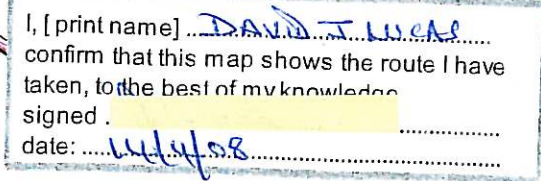 I, [print name] ...DAVID J LUCAS......
confirm that this map shows the route I have
taken, to the best of my knowledge
signed . ....................
date: .....14/4/08..............................